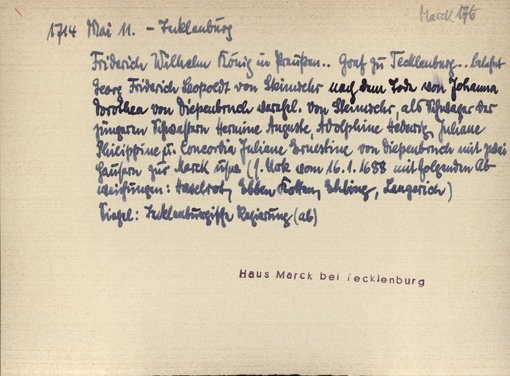 Marck 176
1714 Mai 11. - Tecklenburg
Friderich Wilhelm König in Preußen.. Graf zu Tecklenburg.. belehnt
Georg Friderich Leopoldt von Steinwehr nach dem Tode von Johanna
Dorothea von Diepenbroch verehel. von Steinwehr, als Schwager der
jüngeren Schwestern Hermine Auguste, Adolphine Hedwig, Juliane
Philippine u. Concordia Juliane Ernestine von Diepenbroch mit zwei
Häusern zur Marck usw. (s. Urk vom 16.1.1688 mit folgenden Ab
weichungen: Haselrot, Ebben Kotten, Ehling, Lengerich)
Siegel: Tecklenburgische Regierung (ab)
Haus Marck bei Tecklenburg